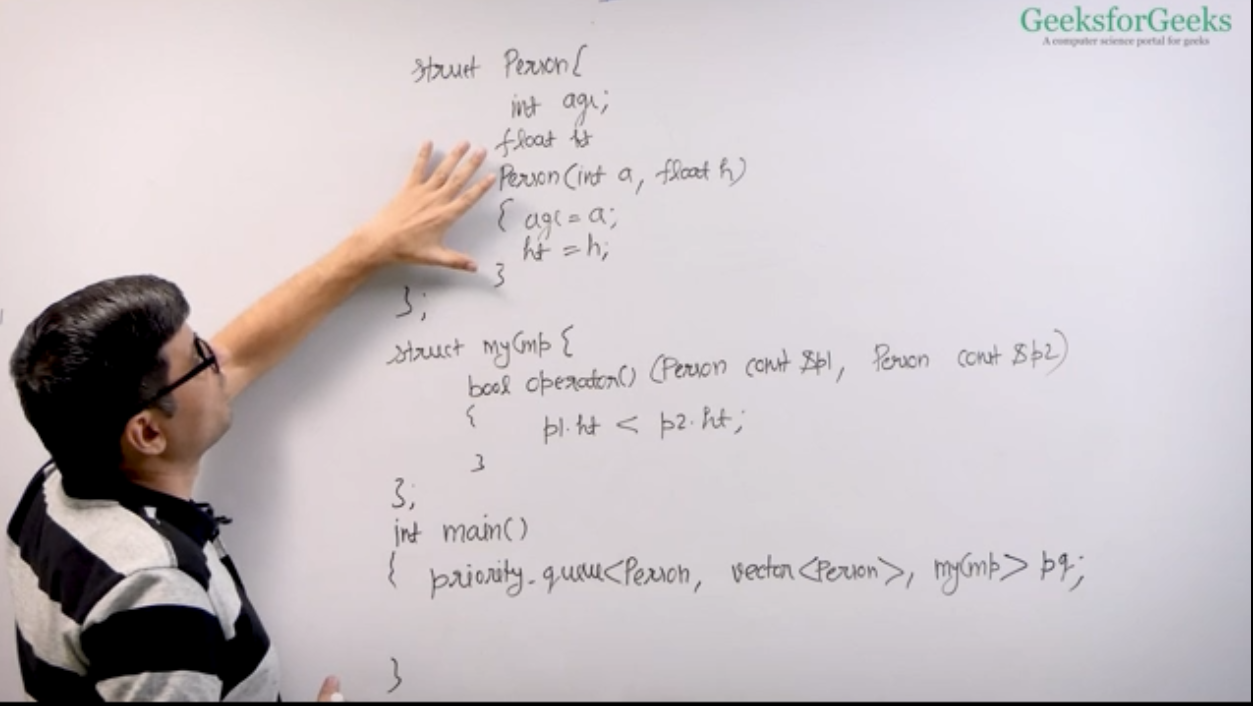 GeeksforGeeks
A computer science portal for geeks
struct Person{
int age;
float ht
Person(int a, float h)
{ age = a;
ht = h;
}
};
struct myCmp {
bool operator() (Person const &p1, Person const &p2)
{ p1.ht < p2.ht;
}
};
int main()
{ priority_queue<Person, vector<Person>, myCmp> pq;
}